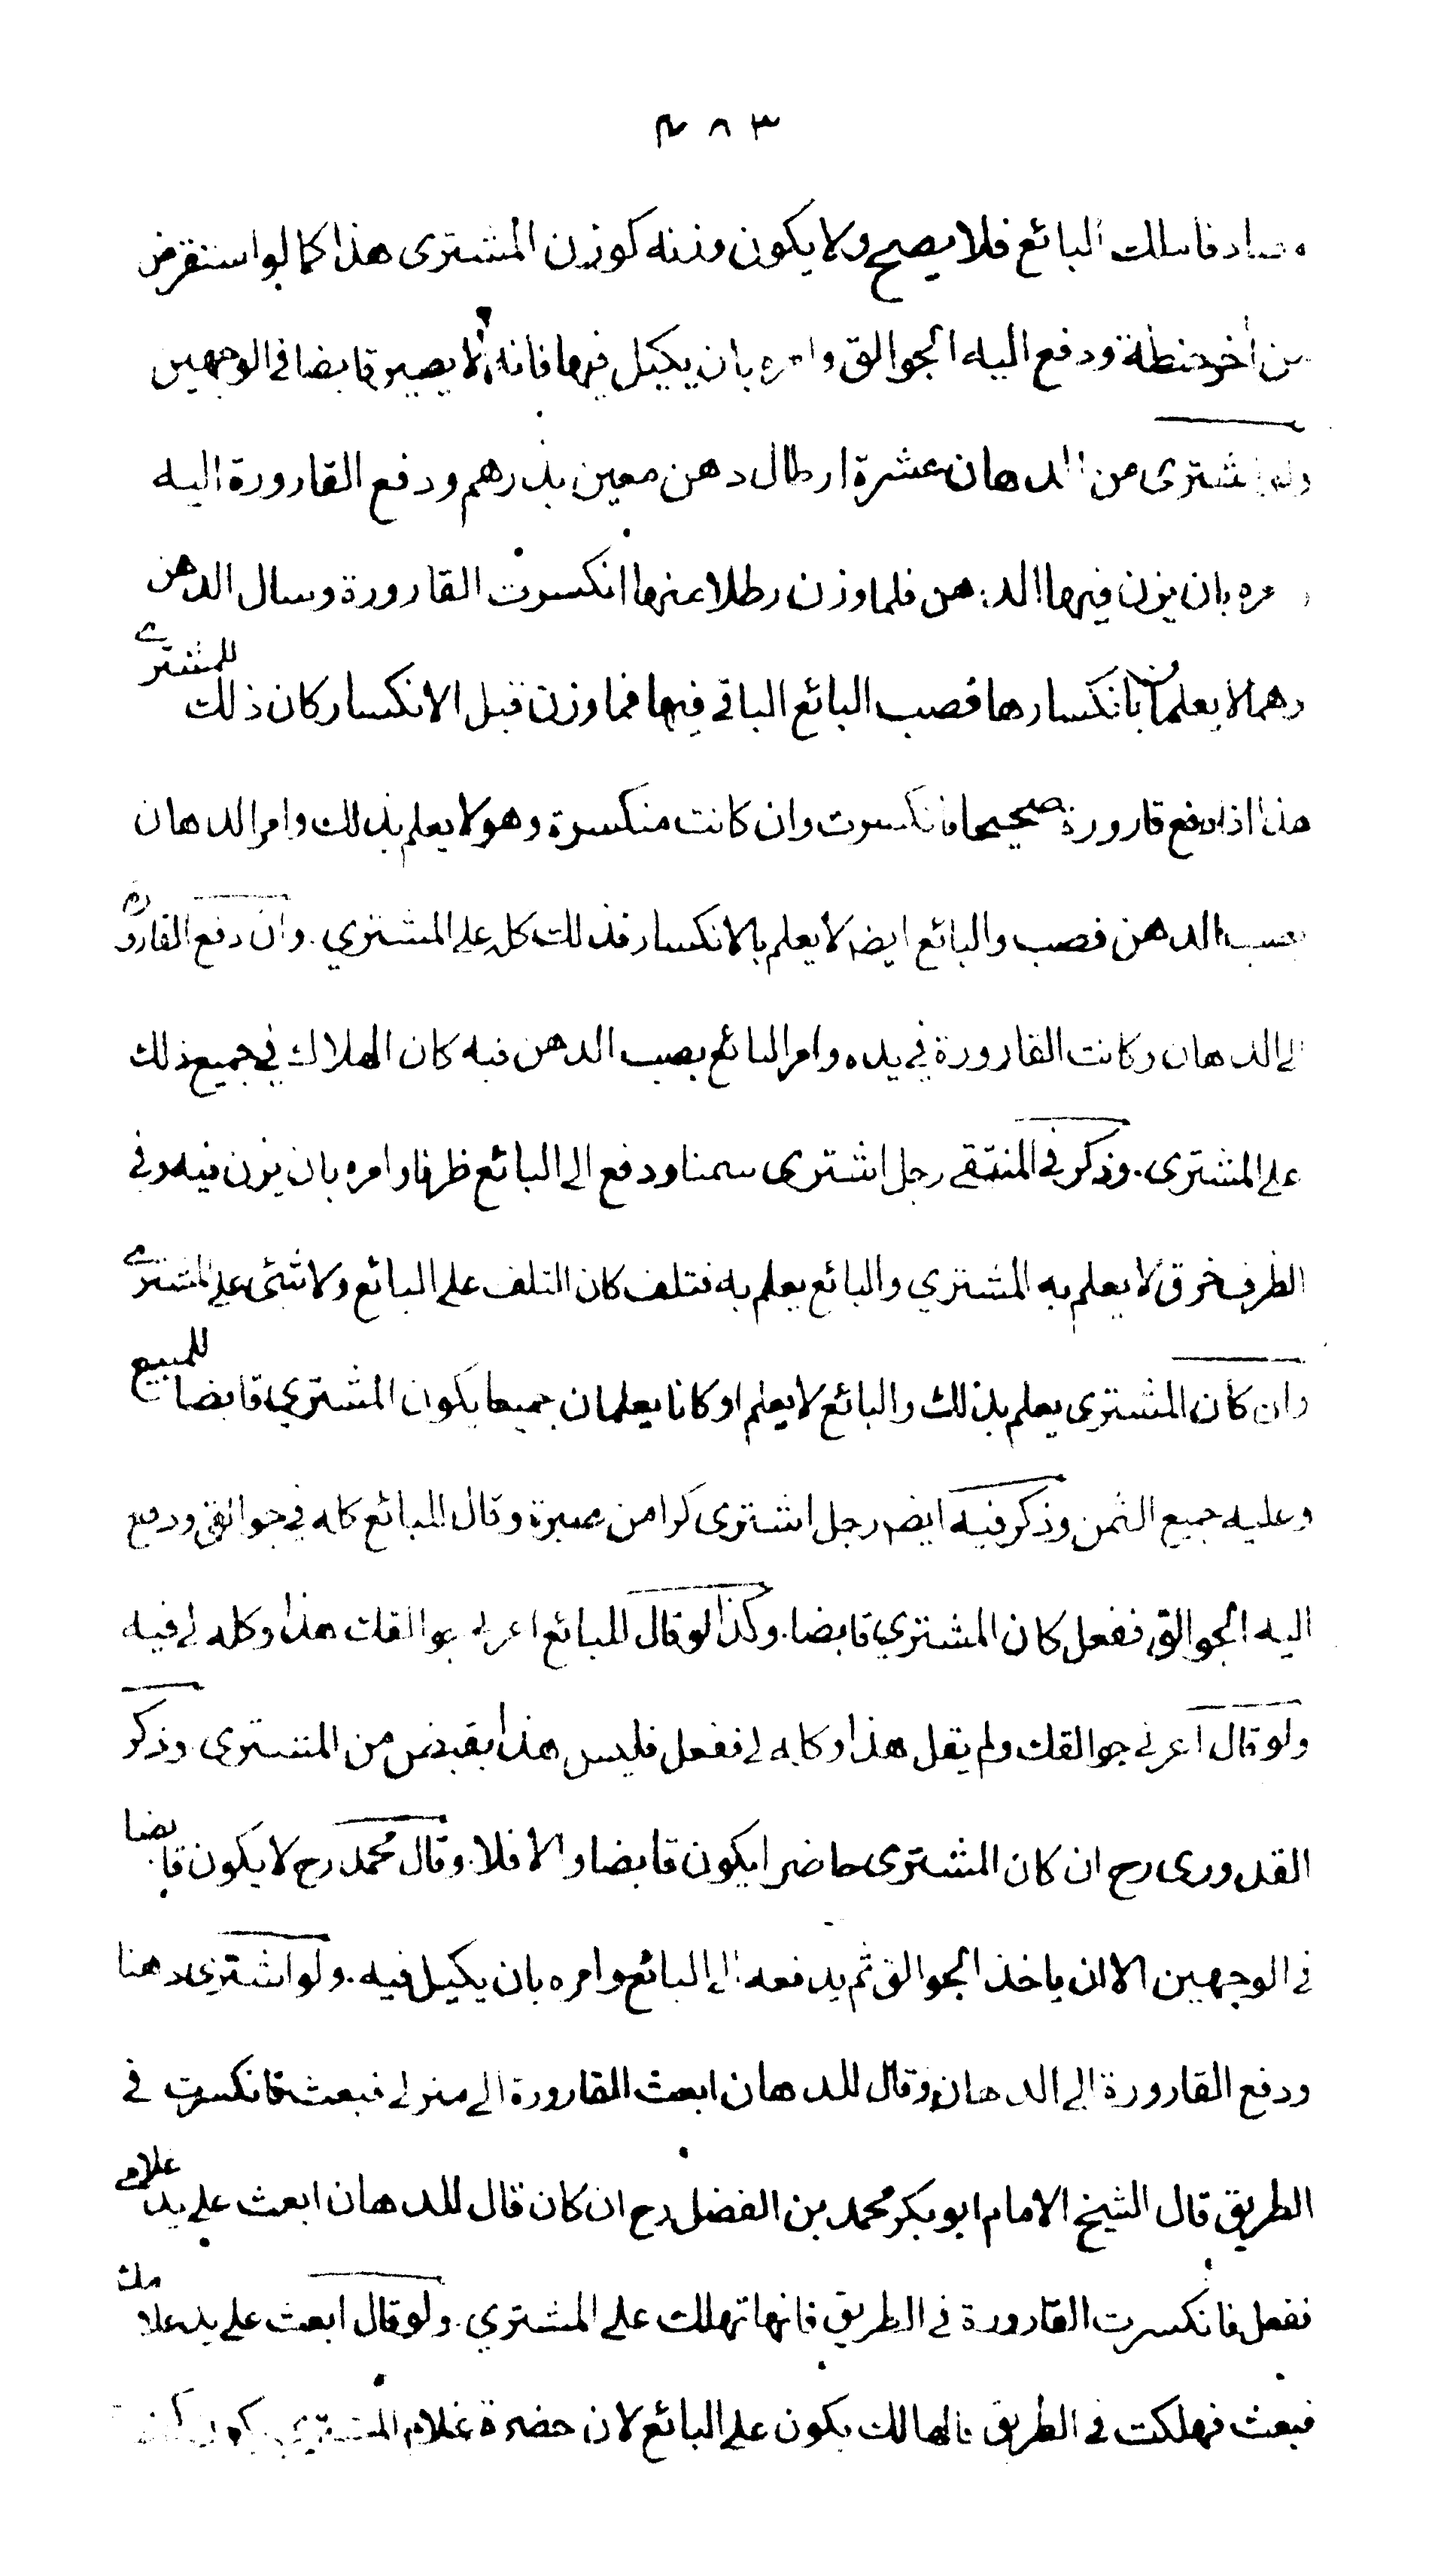 ٤٨٣
البائع فلا يصح ولا يكون وزنه كوزن المشترى هذا كما لو استقرض
من أخر حنطة ودفع اليه الجوالق وامره بان يكيل فيها فانه لا يصير قابضا في الوجهين
ولو اشترى من الدهان عشرة ارطال دهن معين بدرهم ودفع القارورة اليه
وامره بان يزن فيها الدهن فلما وزن رطلا منها انكسرت القارورة وسال الدهن
وهما لا يعلمان بانكسارها فصب البائع الباقي فيها فما وزن قبل الانكسار كان ذلك للمشترے
هذا اذا دفع قارورة صحيحا فانكسرت وان كانت منكسرة وهو لا يعلم بذلك وامر الدهان
بصب الدهن فصب والبائع ايضہ لا يعلم بالانكسار فذلك كله على المشتري . وان دفع القارورہ
الى الدهان وكانت القارورة في يده وامر البائع بصب الدهن فيه كان الهلاك في جميع ذلك
على المشترى . وذكر في المنتقى رجل اشترى سمنا ودفع الى البائع ظرفا وامره بان يزن فيه وفي
الظرف خرق لا يعلم به المشتري والبائع يعلم به فتلف كان التلف على البائع ولا شئى على المشترے
وان كان المشترى يعلم بذلك والبائع لا يعلم او كانا يعلمان جميعا يكون المشتري قابضا للمبيع
وعليه جميع الثمن وذكر فيه ايضہ رجل اشترى كرا من صبرة وقال للبائع كله في جوالقى ودفع
اليه الجوالق ففعل كان المشتري قابضا . وكذا لو قال للبائع اعرني جوالقك هذا وكله لي فيه
ولو قال اعرني جوالقك ولم يقل هذا وكله لي ففعل فليس هذا بقبض من المشترى . وذكر
القدورى رح ان كان المشترى حاضرا يكون قابضا والا فلا . وقال محمد رح لا يكون قابضا
في الوجهين الا ان ياخذ الجوالق ثم يدفعه الى البائع وامره بان يكيل فيه . ولو اشترى دهنا
ودفع القارورة الى الدهان وقال للدهان ابعث القارورة الى منزلى فبعث فانكسرت في
الطريق قال الشيخ الامام ابو بكر محمد بن الفضل رح ان كان قال للدهان ابعث على يد غلامے
ففعل فانكسرت القارورة في الطريق فانها تهلك على المشتري . ولو قال ابعث على يد غلامك
فبعث فهلكت في الطريق فالهالك يكون على البائع لان حضرة غلام المشتري